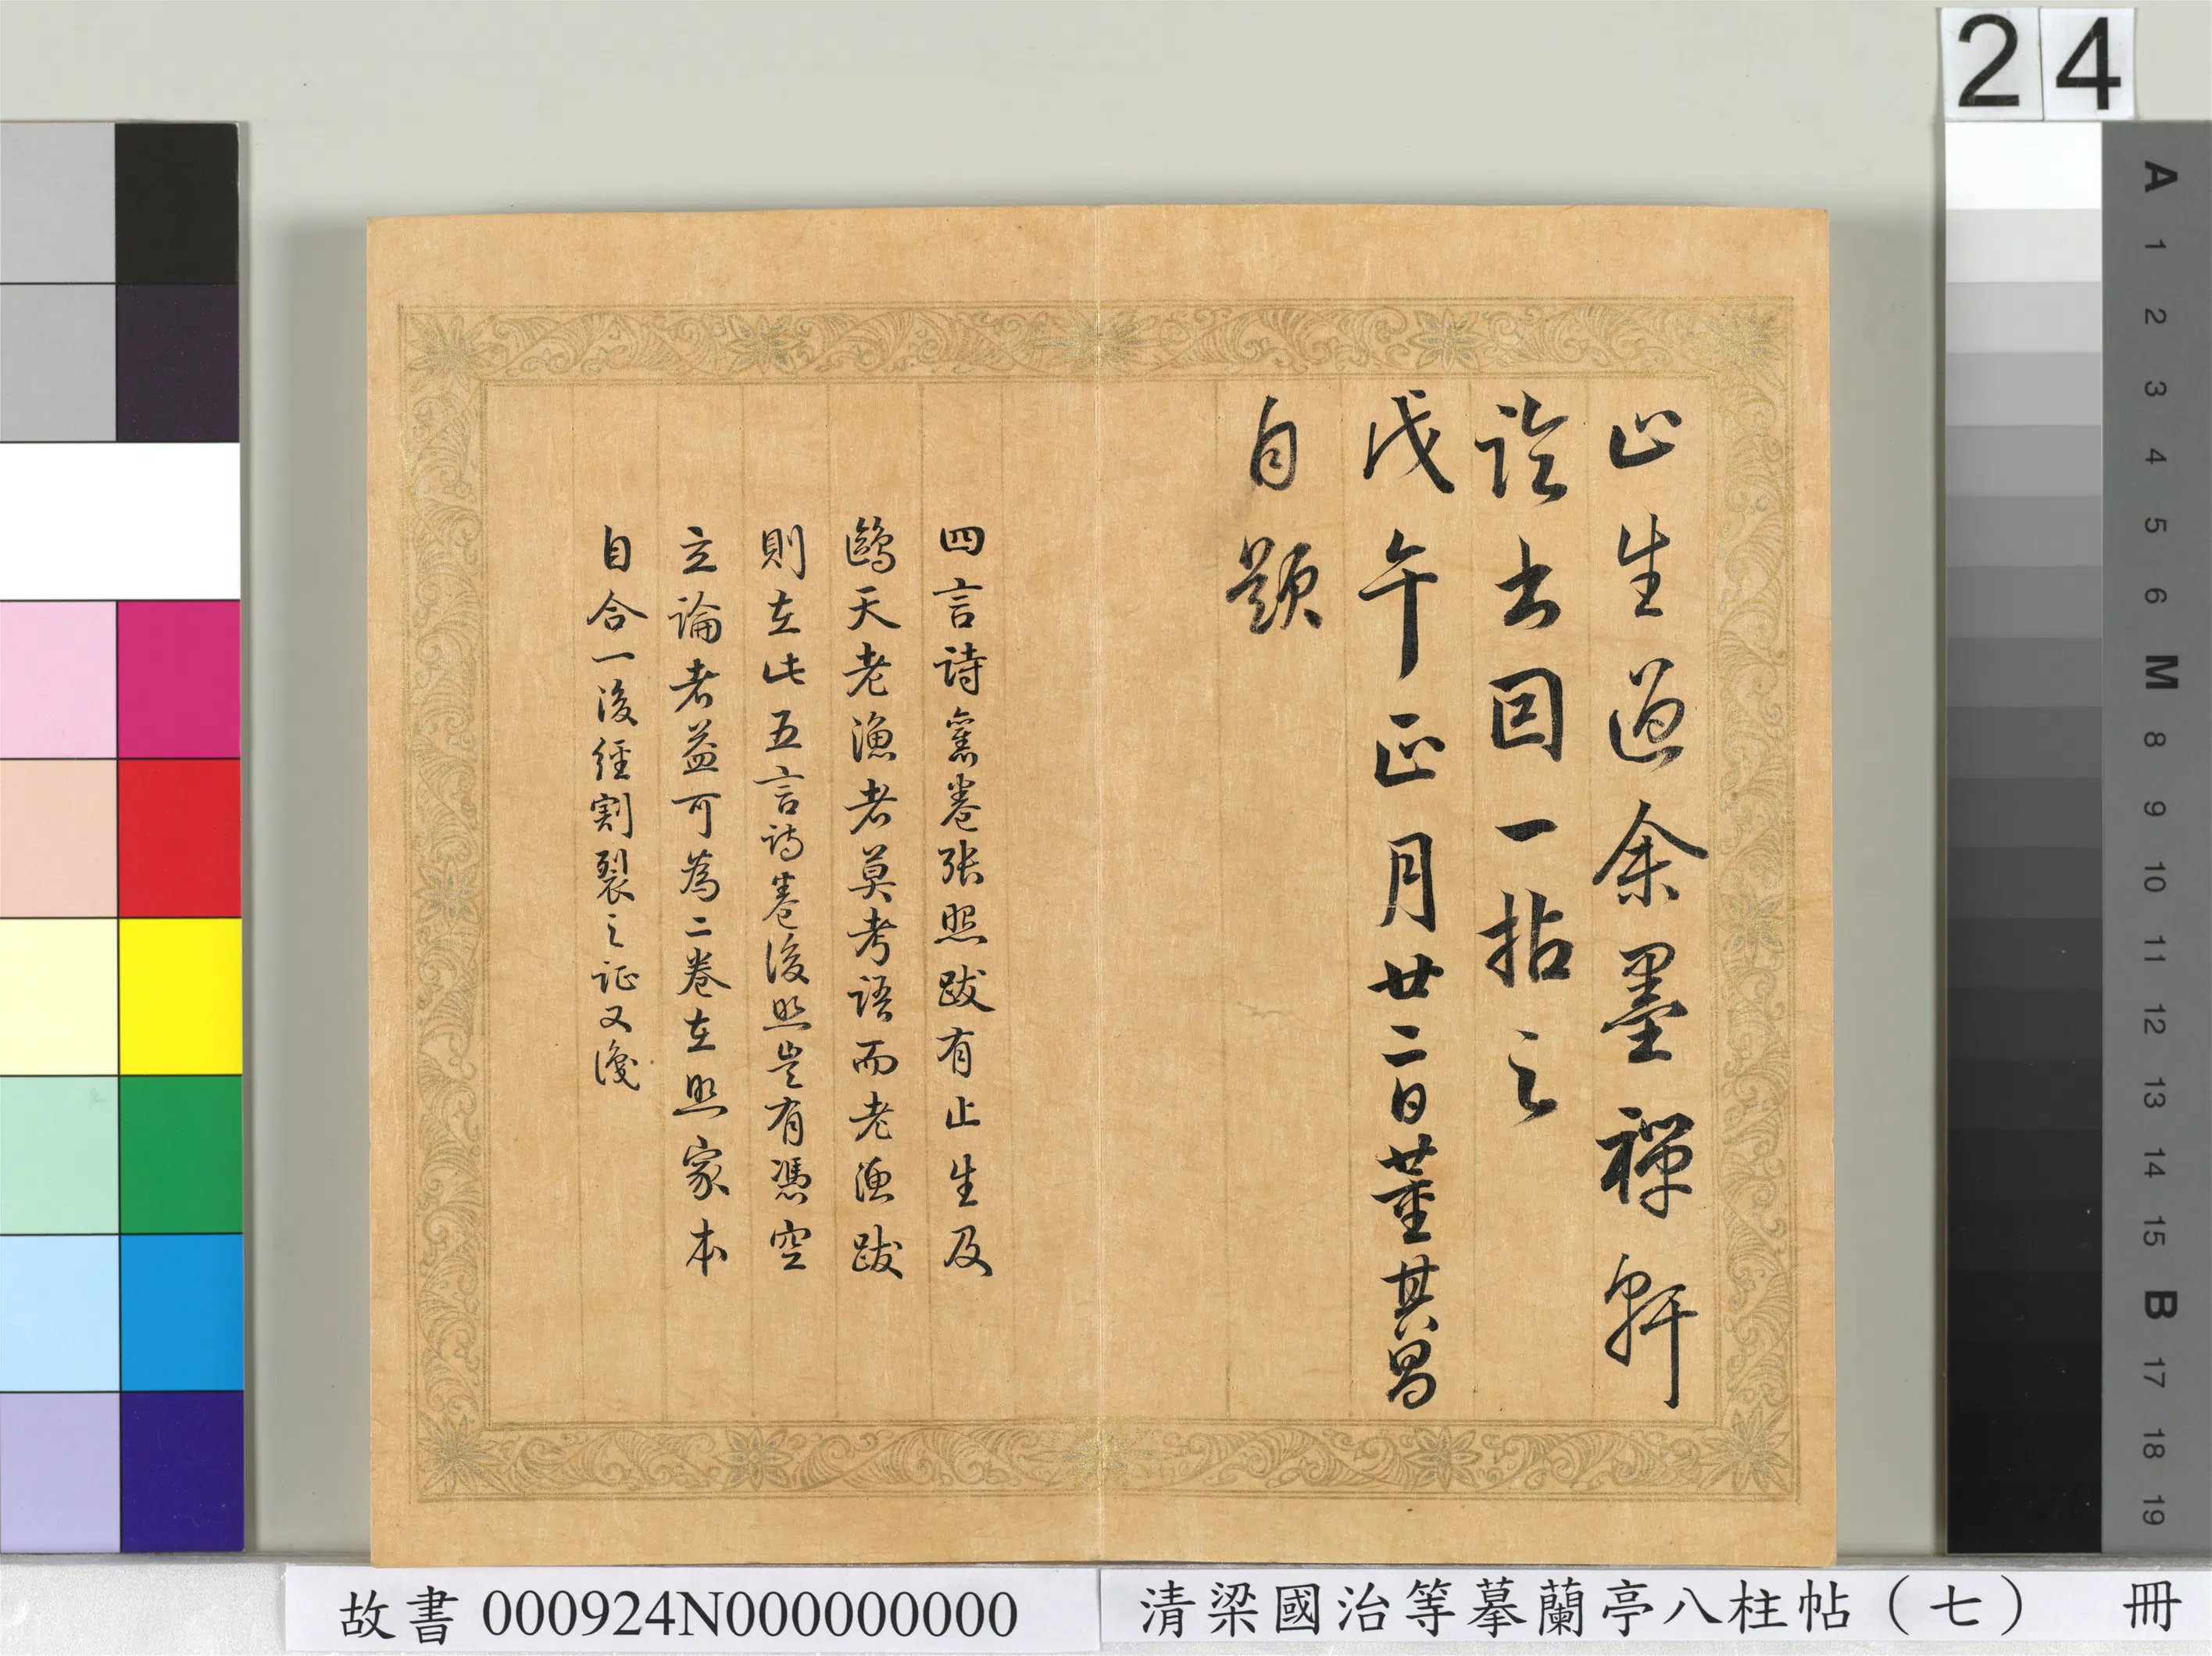 24
止生過余墨禪軒
論書因一拈之
戊午正月廿二日董其昌
自題
四言詩舊卷張照跋有止生及
鷗天老漁者莫考語而老漁跋
則在此五言詩卷後照豈有憑空
立論者益可為二卷在照家本
自合一後經割裂之証又識
A
1
2
3
4
5
6
M
8
9
10
11
12
13
14
15
B
17
18
19
故書 000924N000000000
清梁國治等摹蘭亭八柱帖(七) 冊